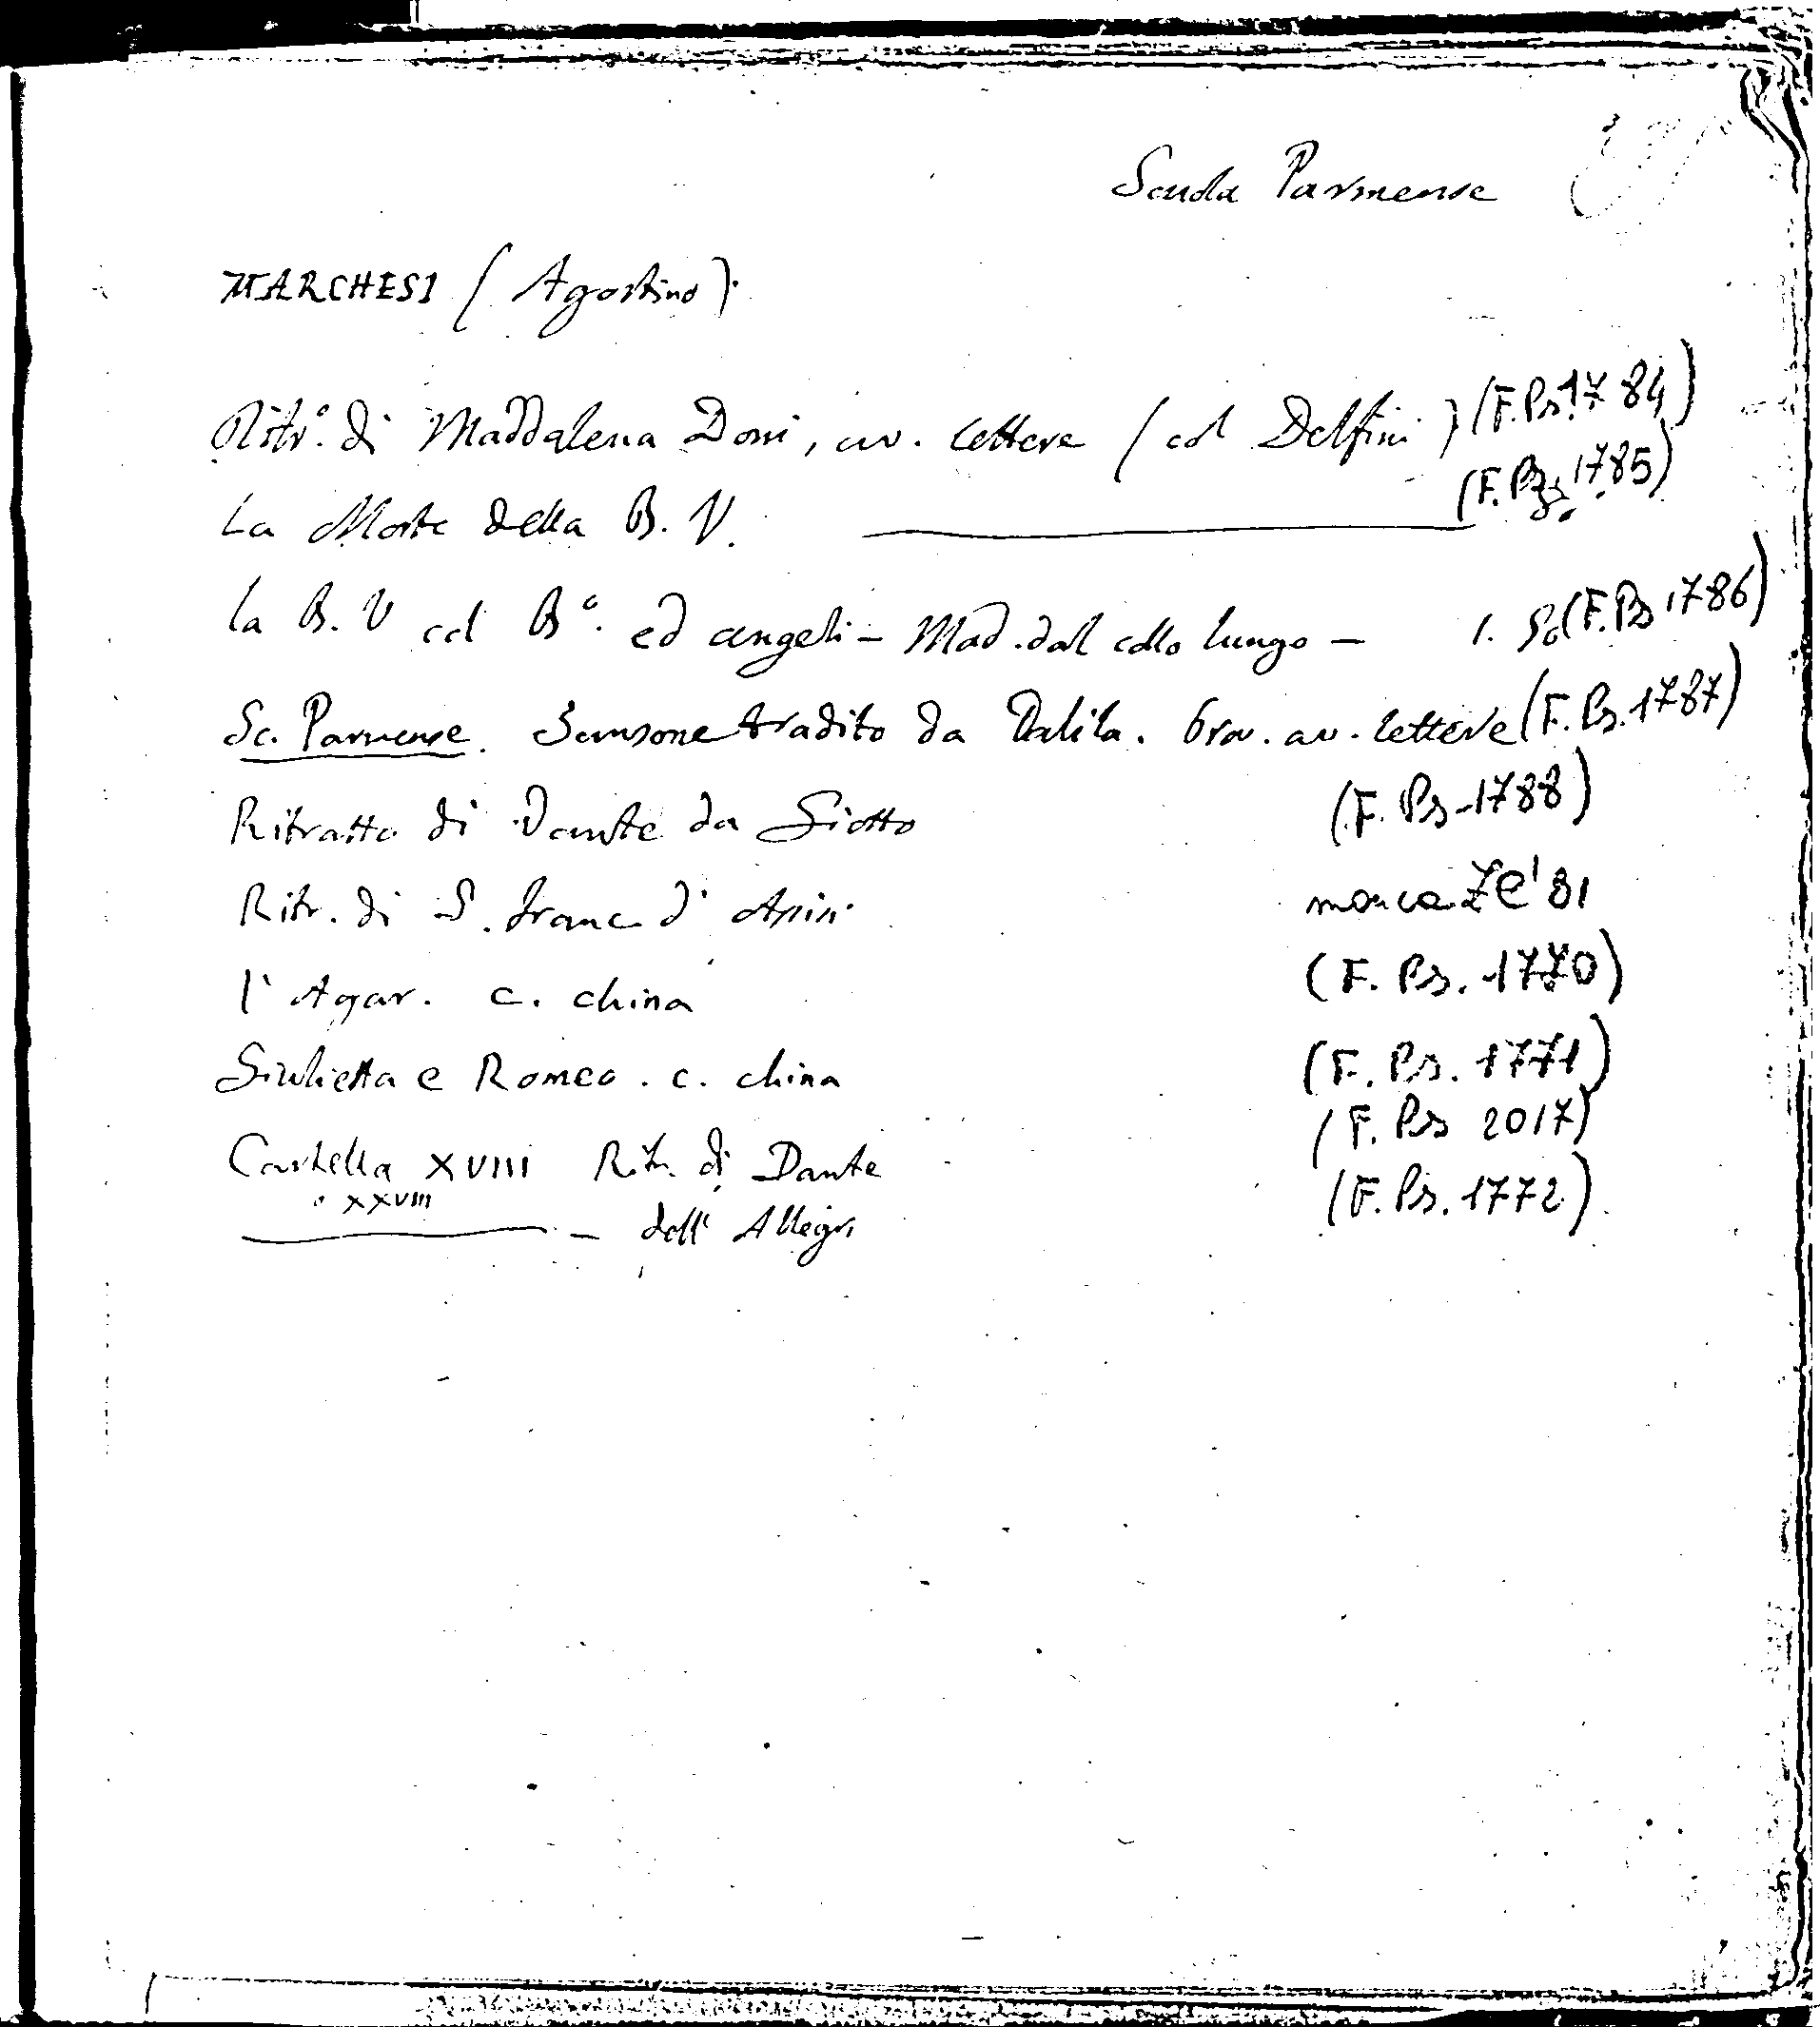 Scuola Parmense
MARCHESI (Agostino).
Ritr°. di Maddalena Doni, av. lettere (col Delfini) (F.Ps.1784)
La Morte della B. V. (F.Ps. 1785)
la B. V col B°. ed angeli - Mad. dal collo lungo - 1. (F.Ps 1786)
Sc. Parmense. Sansone tradito da Dalila. Prov. av. lettere (F. Ps. 1787)
Ritratto di Dante da Giotto (F. Ps 1788)
Ritr. di S. Franc d'Assisi manca '81
l'Agar. c. china (F. Ps. 1770)
Giulietta e Romeo. c. china (F. Ps. 1771)
Cartella XVIII Ritr. di Dante (F. Ps 2017)
o XXVIII
- dell'Allegri (F. Ps. 1772)